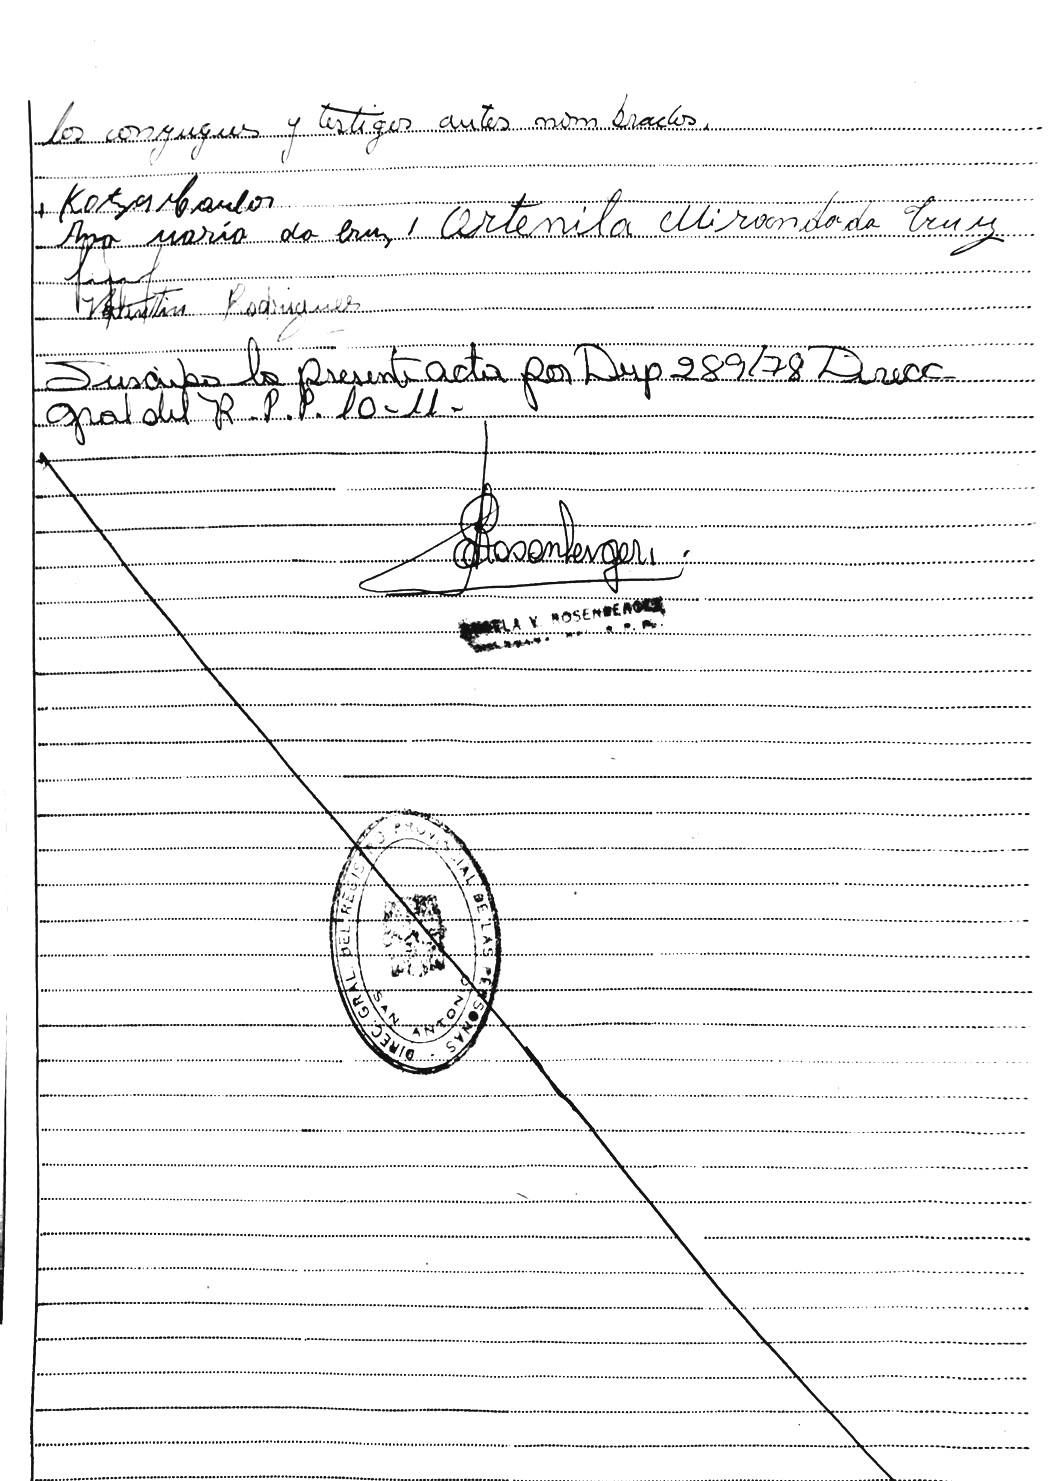 los conyugues y testigos antes nombrados.
Kotza Carlos
Ana maria da Cruz
Artenila Miranda da Cruz
Valentin Rodrigues
Suscripo la presente acta por Disp 289/78 Direcc
gral del R. P.P. 10-11.-
Rosenberger
V. ROSENBERGER
DIREC. GRAL DEL REGISTRO PROVINCIAL DE LAS PERSONAS
SAN ANTONIO